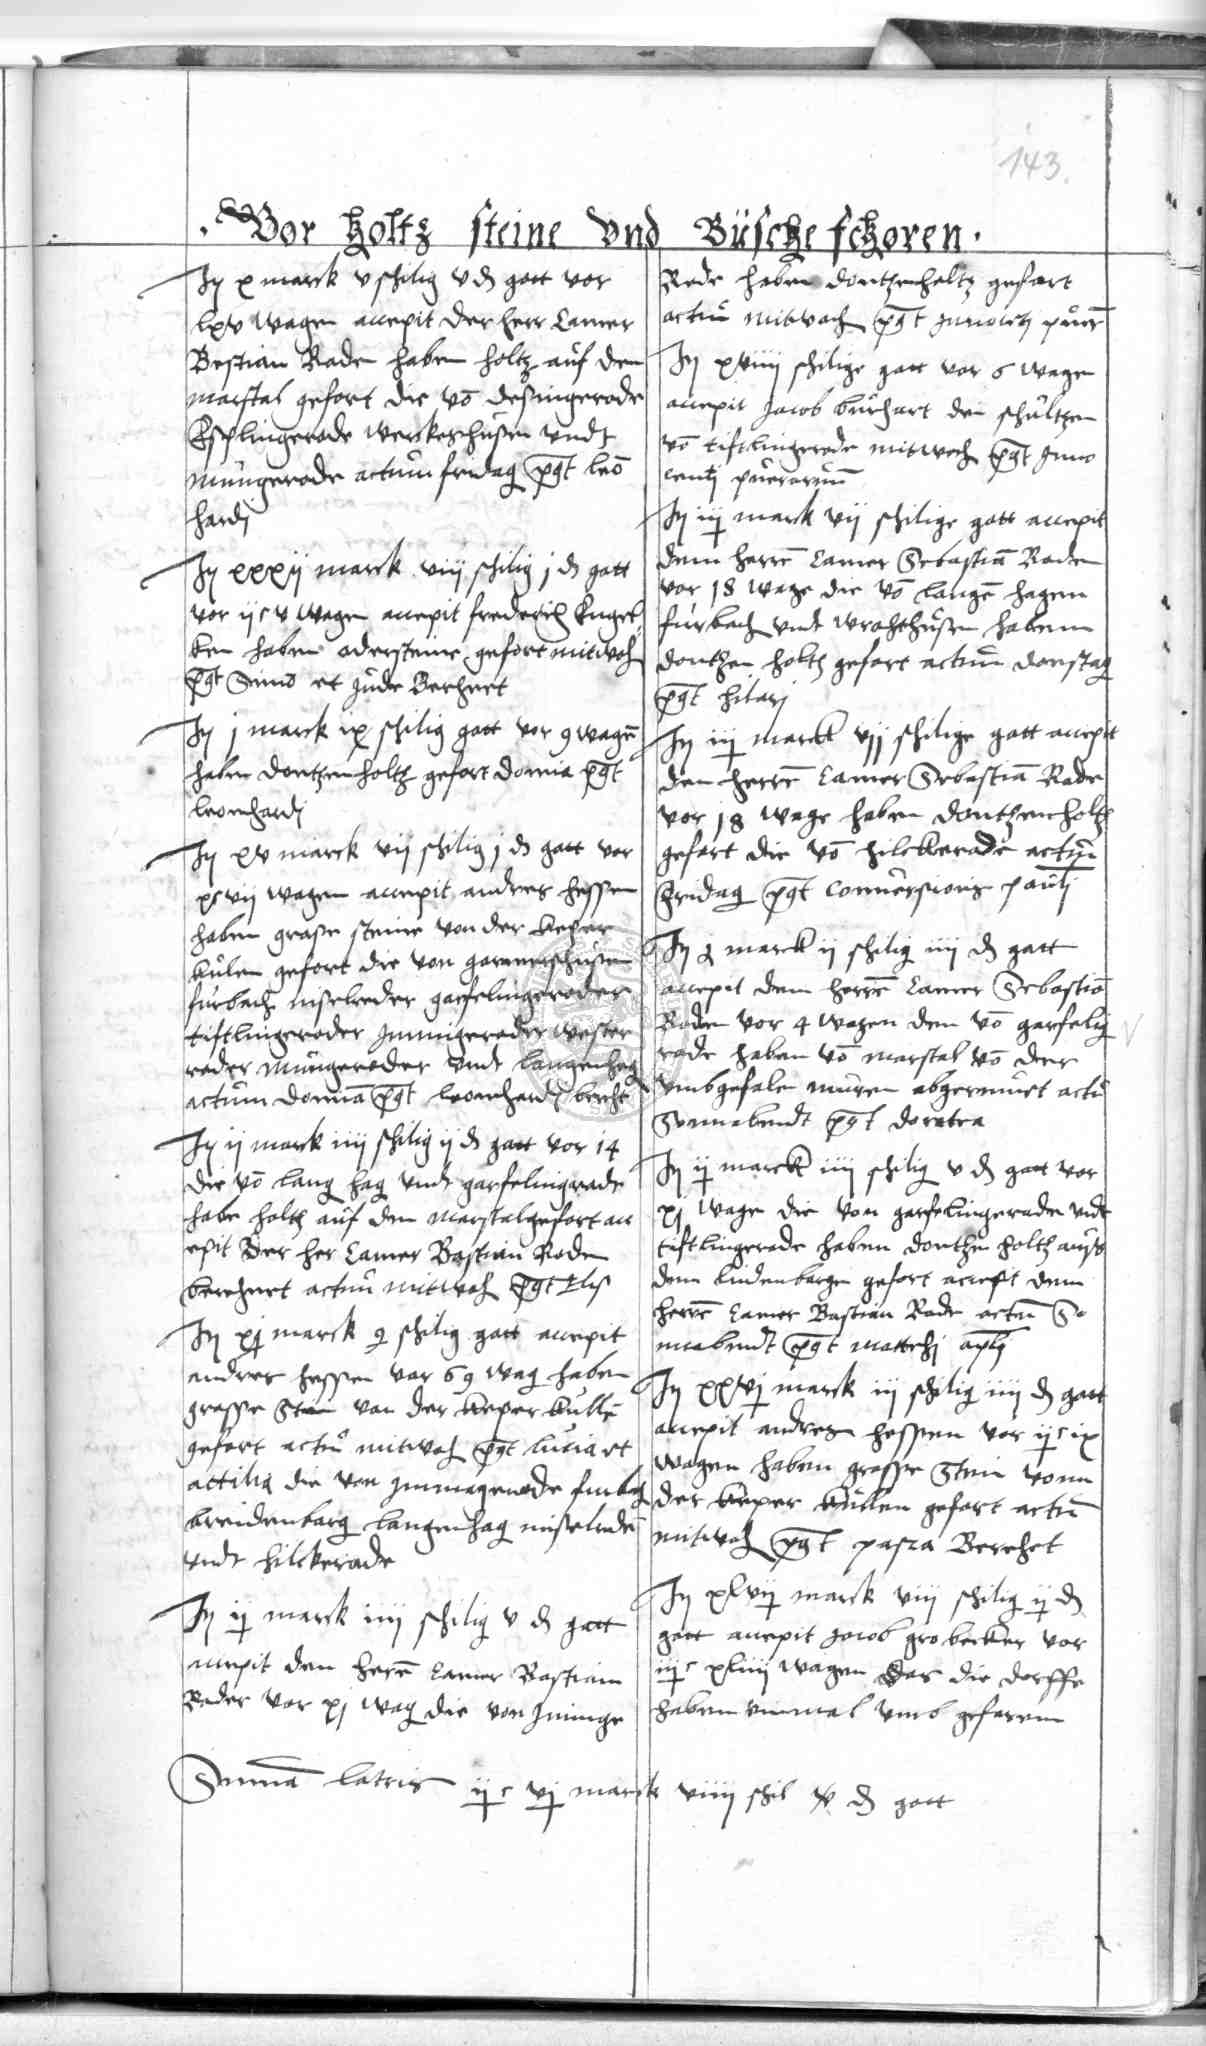 143.
Vor Holtz steine vnd Büsche fehoren
It x marck v schilig v d gott vor
lxv wagen accepit der herr Camer
Bestian Rade haben holtz auf den
marstal gefort die vō deßingerode
Esplingerode werckeshusen vndt
mingerode actum fridag pgt leō
hardj
It xxxij marck viij schilig j d gott
vor ijc v wagen accepit frederich Engel
ken haben edersteine gefort mitwoch
pgt Simō et Jude Berechnet
It j marck ix schilig gott vor 9 wagē
haben dontzenholtz gefort domīa pgt
leonhardj
It xv marck vij schilig j d gott vor
wagen accepit andres hessen
haben grosse steine von der keper
kulen gefort die von
furbach niselreder garselingeroder
tiftlingeroder Jmmigeroder wester
roder mingeroder vndt langenhag
actum domīa pgt leonhardj berecht
It ij marck iiij schilig ij d gott vor 14
die vō lang hag vndt garselingrade
habe holtz auf den marstal gefort acc
epit Der her Camer Bastian Rode
berechnet actum mitwoch pgt Elis
It xj marck 9 schilig gott accepit
andres hessen vor 69 wag haben
grosse Stein von der keper kulle
gefort actū mitwoch pgt lucia et
attilia die von Jmmigerode furbag
breidenbarg langenhag niselrade
vndt hilckerode
It ij marck iiij schilig v d gott
accepit den herē Camer Bastian
Roder vor xj wag die von Jminge
Rode haben dontzenholtz gefort
actum mitwoch pgt Jnnocētj puerē
It xviiij schilige gott vor 6 wage
accepit Jacob burhart den schultzen
vō tiftlingerode mitwoch pgt Jnno
centj puerorum
It iij marck vij schilige gott accepit
dem herrē Camer Sebastiā Rode
vor 18 wage die vō langē hagen
furbach vndt haben
dontzen holtz gefort actum donstag
pgt hilarj
It iij marck vij schilige gott accepit
den herrē Camer Sebastiā Rode
vor 18 wage haben dontzen holtz
gefort die vō hilckerade actum
Fridag pgt conuersionis paulj
It j marck ij schilig iiij d gott
accepit dem herrē Camer Sebastiā
Roden vor 4 wagen den vō garselig
rade haben vō marstal vō der
vmbgefale muren abgeruumet actū
Sonnabendt pgt doratea
It ij marck iiij schilig v d gott vor
xj wage die von garselingerade vndt
tiftlingerade haben dontzen holtz auß
dem lindenbarge gefort accepit dem
herrē Camer Bastian Rade actum So
nnabendt pgt mattehj aplj
It xxvj marck iij schilig iiij d gott
accepit andres hessen vor ijc ix
wagen haben grosse Stein vonn
der keper kullen gefort actum
mitwoch pgt pasca Berehet
It xlvij marck viij schilig ij d
gott accepit Jacob grobecker vor
iijc xliiij wagen das die dorffe
haben einmal vmb gefaren
Summa latris ijc vj marck viiij schil v d gott